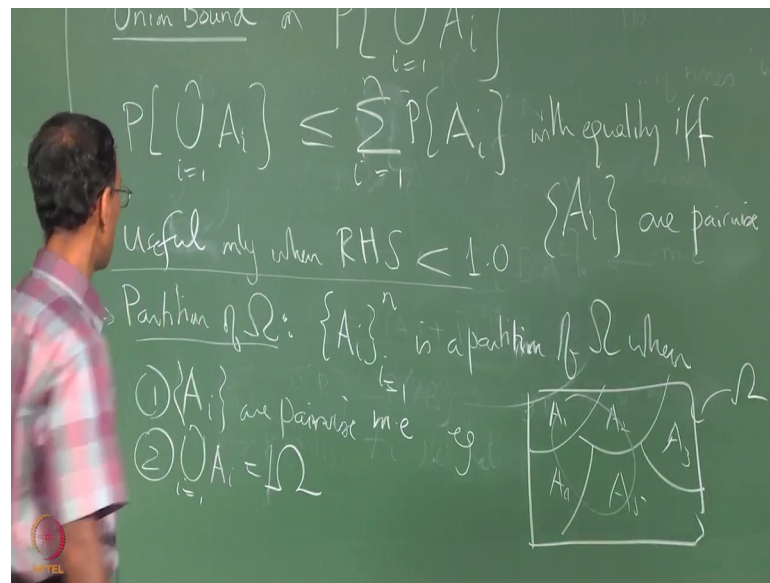 Union Bound on P[⋃_{i=1} A_i]
P[⋃_{i=1} A_i] ≤ ∑_{i=1}^{n} P{A_i] with equality iff
{A_i} are pairwise
Useful only when RHS < 1.0
Partition of Ω: {A_i}_{i=1}^{n} is a partition of Ω when
① {A_i} are pairwise m.e
② ⋃_{i=1} A_i = Ω
eg
Ω
A_1 A_2 A_3
A_4 A_5